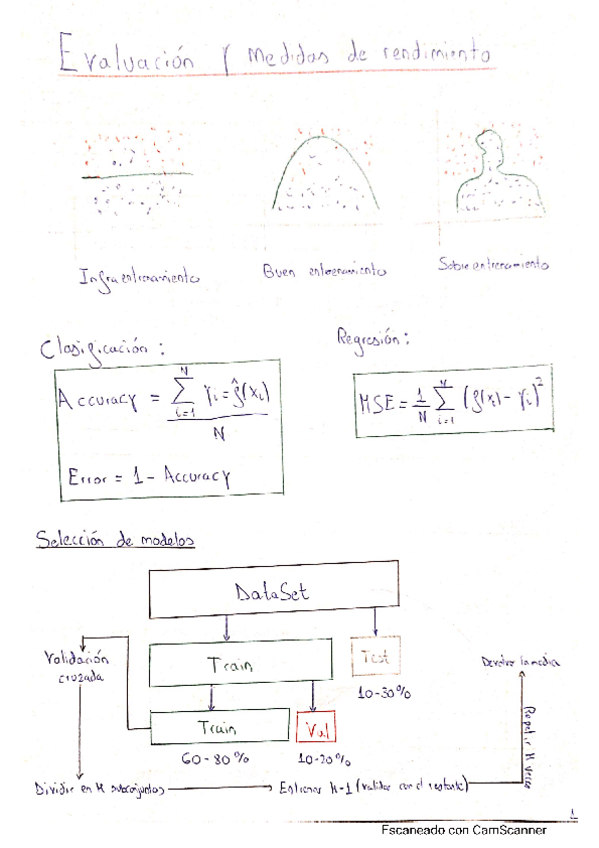 Evaluación y medidas de rendimiento
Infraentrenamiento
Buen entrenamiento
Sobreentrenamiento
Clasificación:
Accuracy = \frac{\sum_{i=1}^{N} Y_i = \hat{f}(x_i)}{N}
Error = 1 - Accuracy
Regresión:
MSE = \frac{1}{N} \sum_{i=1}^{N} (f(x_i) - Y_i)^2
Selección de modelos
DataSet
Train
Test
10-30%
Train
Val
60-80%
10-20%
Validación
cruzada
Dividir en K subconjuntos
Entrenar K-1 (validar con el restante)
Repetir K veces
Devolver la media
1
Escaneado con CamScanner